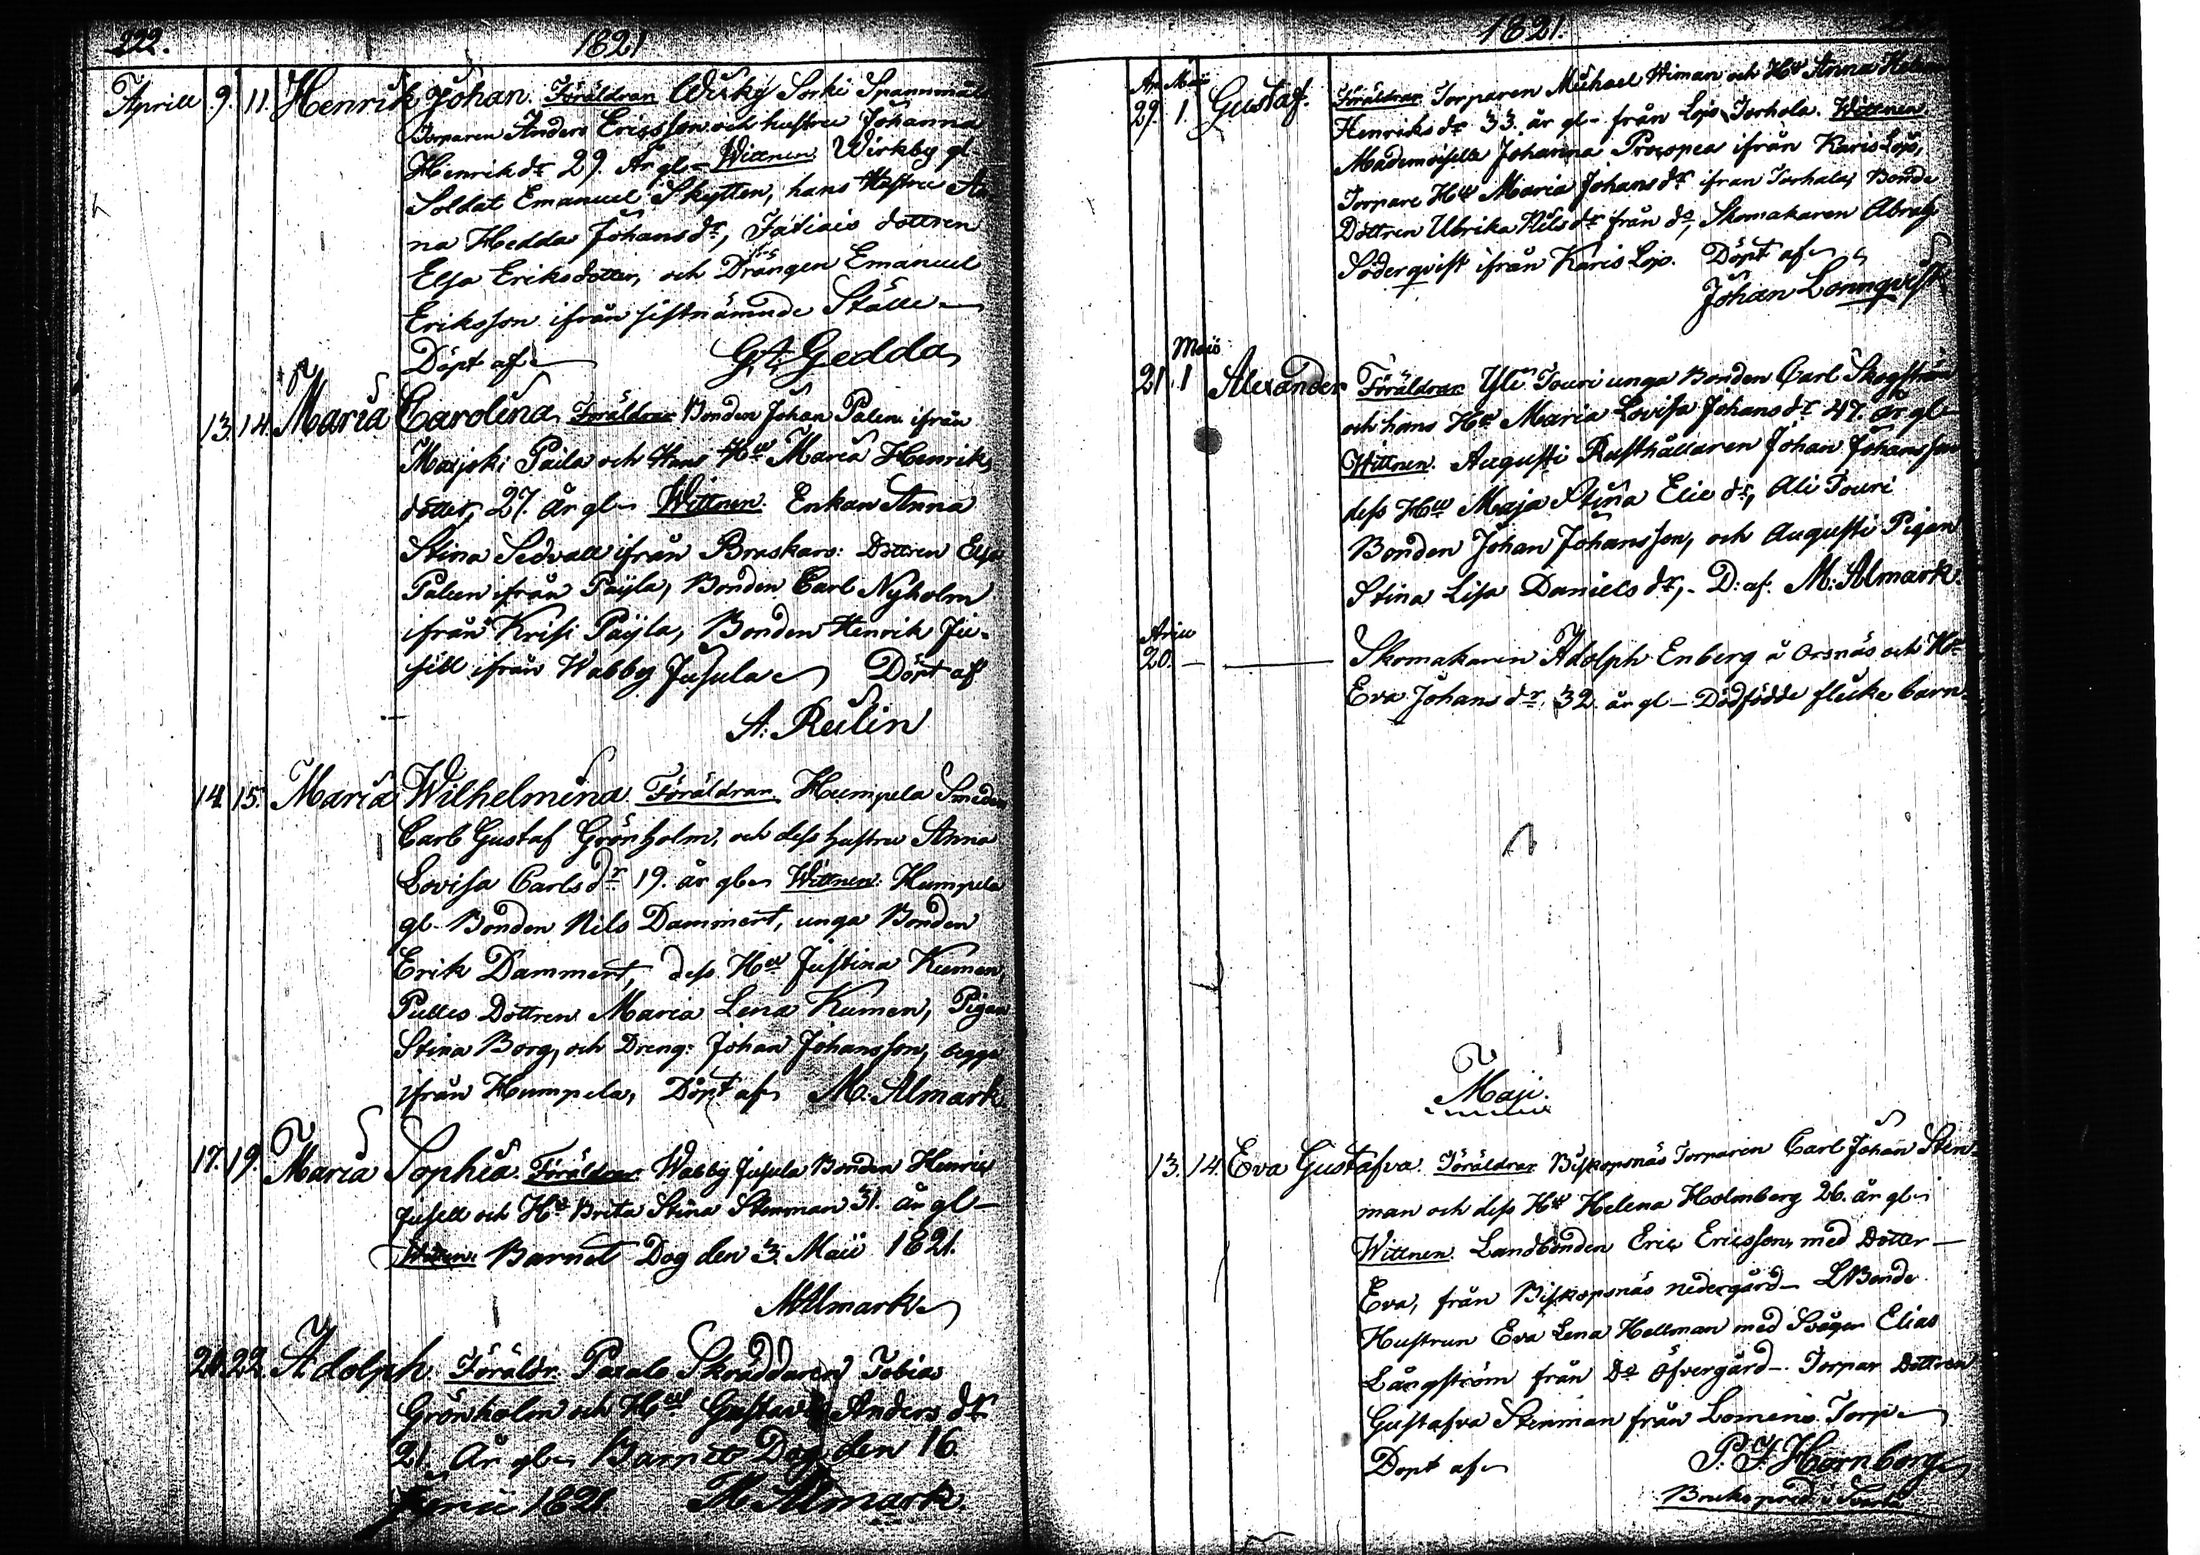 222.
1821
Aprill 9. 11. Henrik Johan. Föräldrar Wirkby Sorki Spannmåls
Torparen Anders Ericsson och hustru Johanna
Henriks dr 29. År gl. Wittnen Wirkby gl
Soldat Emanuel Skytten, hans Hustru An
na Hedda Johans dr, Jätiais dottren
Elsa Eriksdotter, och Drängen Emanuel
Eriksson ifrån sistnämnde Ställe
Döpt af G.A. Gedda
13. 14. Maria Carolina Föräldrar Bonden Johan Palen ifrån
Maijoki Paila och Hans Hu Maria Henriks
dotter, 27. år gl. Wittnen Enkan Anna
Stina Sedvall ifrån Bruskars: Dottren Elsa
Paleen ifrån Päyla, Bonden Carl Nyholm
ifrån Krisi Päyla, Bonden Henrik Ju-
sell ifrån Wabby Jusula Döpt af
A. Relin
14. 15. Maria Wilhelmina. Föräldrar Humpela Smeden
Carl Gustaf Grönholm, och dess hustru Anna
Lovisa Carls dr 19. år gl. Wittnen: Humpela
gl. Bonden Nils Dammert, unga Bonden
Erik Dammert, dess Hu Justina Kumen,
Pulles Dottren Maria Lena Kumen, Pigan
Stina Borg, och Dreng: Johan Johansson, begge
ifrån Humpela, Döpt af M: Almark.
17. 19. Maria Sophia. Föräldrar Wabby Jusula Bonden Henric
Jusell och Hu Brita Stina Stenman 31. år gl
Wittnen: Barnet Dog den 3. Maii 1821.
M Almark
22. Adolph. Föräldr. Skräddaren Tobias
Grönholm och Hu Anders dr
21. År gl. Barnet Dog den 16
Junii 1821 M Almark.
1821.
Ap. Maii
29. 1. Gustaf. Föräldrar Torparen Michael Wiman och Hu Anna
Henriks dr 33. år gl. från Lojo Torhola. Wittnen
Mademoiselle Johanna Procopea ifrån Karis Lojo,
Torpare Hu Maria Johans dr ifrån Torhola, Bonde
Dottren Ulrika Nils dr från do, Skomakaren Abrah
Söderqvist ifrån Karis Lojo. Döpt af
Johan Lönnqvist
Maii
21. 1 Alexander Föräldrar Yli Touri unga Bonden Carl Skogström
och hans Hu Maria Lovisa Johans dr 47. år gl
Wittnen. Augusti Rusthållaren Johan Johansson
dess Hu Maja Stina Elie dr, Ali Touri
Bonden Johan Johansson, och Augusti Pigan
Stina Lisa Daniels dr, - D: af. M: Almark.
20. — Skomakaren Adolph Enberg å Orsnäs och Hu
Eva Johans dr. 32. år gl — Dödfödde flicke barn.
Maji.
13. 14. Eva Gustafva. Föräldrar Biskopsnäs Torparen Carl Johan Sten-
man och dess Hu Helena Holmberg 26. år gl.
Wittnen. Landbonden Eric Ericsson, med Dotter
Eva, från Biskopsnäs nedergård — LBonde
Hustrun Eva Lena Hellman med Svåger Elias
Långström från Do Öfvergård — Torpar Dottren
Gustafva Stenman från Lomens Torp
Döpt af P. J. Hornborg
Brukspred: i Svartå